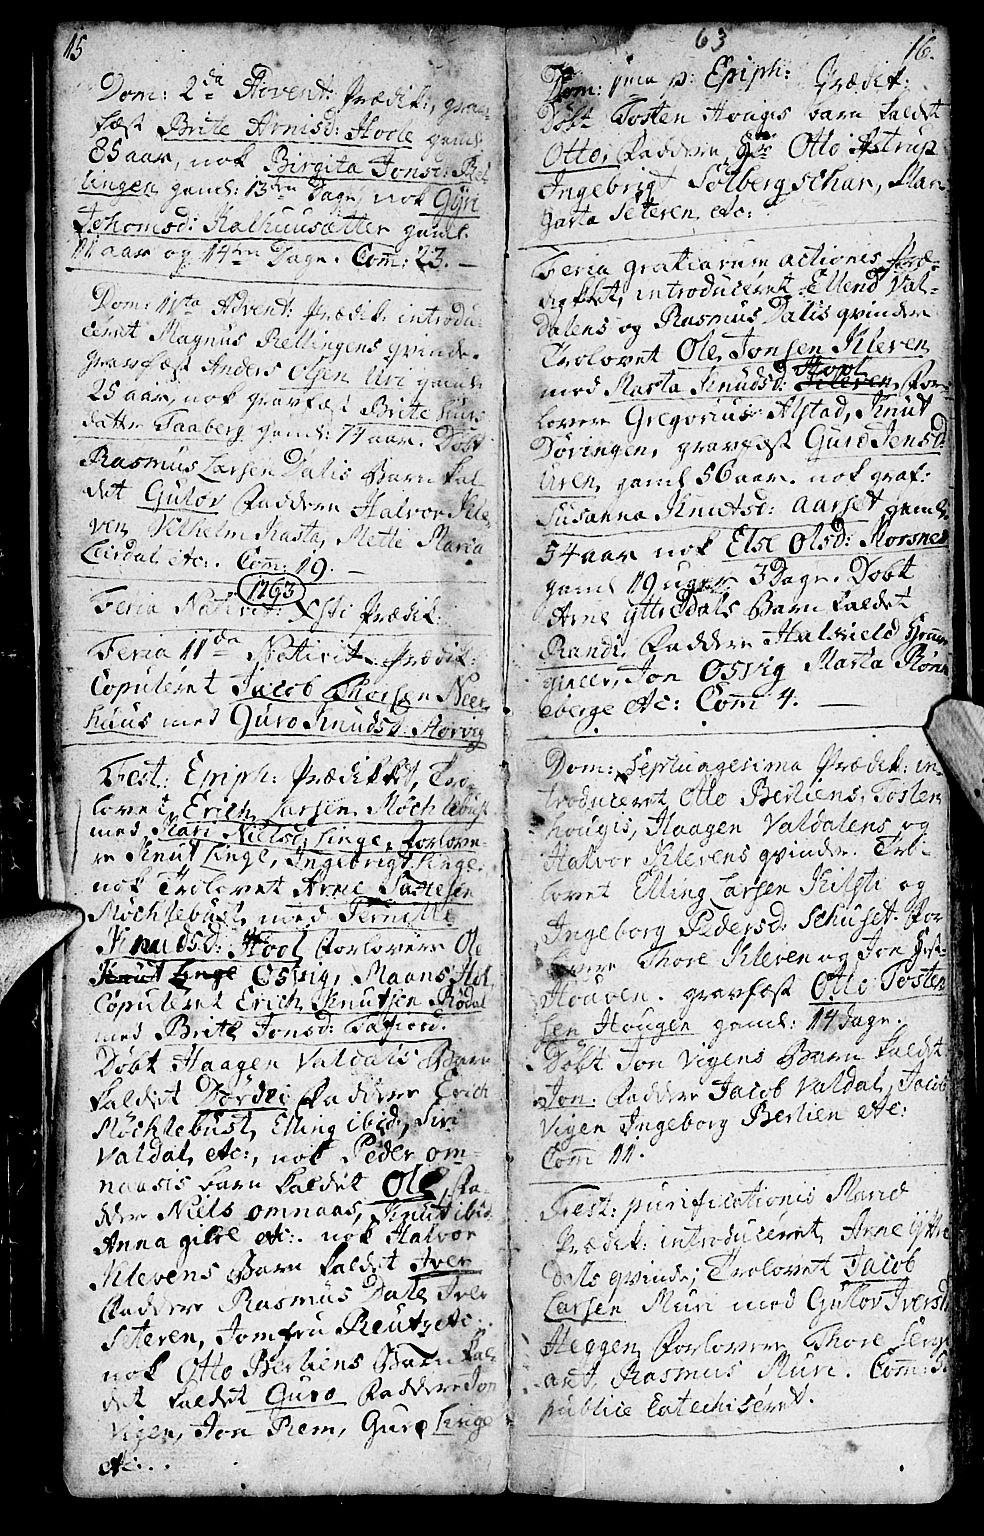 15
Dom: 2da Advent: Prædik:, grav-
fæst Brite Arnisd: Hoele gaml:
85 aar, nok Birgita Jonsd: Rel-
lingen gaml: 13ten Dage, nok Gyri
Thomsd: Kalhuusætter gaml:
11 aar og 14ten Dage. Com: 23. —
Dom: 4ta Advent: Prædik: introdu-
ceret Magnus Rellingens qvinde.
gravfæst Anders Olsen Uri gaml:
25 aar, nok gravfæst Brite
datter Taaberg gaml: 74 aar. Døbt
Rasmus Larsen Dalis Barn kal-
det Gulov Faddere Halvor Kle-
ven, Vilhelm Kasta, Mette Maria
Leirdal etc: Com: 19. —
1763
Feria Nativit: Xsti Prædik:
Feria 11da Nativit: Prædik:
Copuleret Jacob Thorsen Neer-
huus med Guro Knudsd: Storvig
Fest: Epiph: Prædikket, Tro-
lovet Erich Larsen Mochlebust
med Kari Nielsd: Linge, Forlove-
re Knut Linge, Ingebrigt Linge.
nok Trolovet Arne
Mochlebust med Pernille
Knudsd: Hool Forlovere Ole
Knut Linge Osvig, Maans Hol,
Copuleret Erich Knutsen Rødal
med Brite Jonsd: Tafiord.
Døbt Haagen Valdals Barn
kaldet Dordei Faddere Erich
Mochlebust, Elling ibid:, Siri
Valdal, etc:, nok Peder om-
naasis barn kaldet Ole, Fa-
ddere Niels omnaas, Knut ibid
Anna gilde etc:. nok Halvor
Klevens Barn kaldet Iver
Faddere Rasmus Dale, Iver
Seteren, Jomfru Reutz etc:.
nok Otto Berliens Barn kal-
det kaldet Guro Faddere Jon
Vigen, Jon Rem, Guro Linge
etc:..
63
16.
Dom: 1ma p: Epiph: Prædik:
Døbt Tosten Hougis barn kaldet
Otto, Faddere Hr: Otto Astrup
Ingebrigt Solbergschar, Mar-
garta Seteren, etc:
Feria gratiarum actionis Præ-
dikket, introduceret Ellend Val-
dalens og Rasmus Dalis qvinder
Trolovet Ole Jonsen Kleven
Hool
med Marta Knudsd: Kleven, For-
lovere Gregorius Alstad, Knut
Døvingen, gravfæst Gurd Jensd:
Uren, gaml 56 aar. nok graf:
Susanna Knutsd: Aarset gaml:
54 aar nok Else Olsd: Korsnes
gaml 19 uger 3 Dage. Døbt
Arne ytte Dals Barn kaldet
Randi Faddere Halkield
Jon Osvig Marta Rønn-
eberge etc: Com 4. —
Dom: Septuagesima Prædik: in-
troduceret Otto Berliens, Tosten
hougis, Haagen Valdalens og
Halvor Klevens qvinder. Tro-
lovet Elling Larsen Kilsti og
Ingeborg Pedersd: Schuset. For-
lovere Thore Kleven og Jon
Houven. gravfæst Otto Tosten-
sen Hougen gaml: 14 Dage.
Døbt Jon Vigens Barn kaldet
Jon: Faddere Jacob Valdal, Jacob
Vigen Ingeborg Berlien etc:
Com 11.
Fest: purificationis Mariæ
Prædik: introduceret Arne ytte
Dals qvinde; Trolovet Jacob
Larsen Muri med Gulov Iversd:
Heggen Forlovere Thore Serg-
ant, Rasmus Muri. Com:
publice Catechiseret.